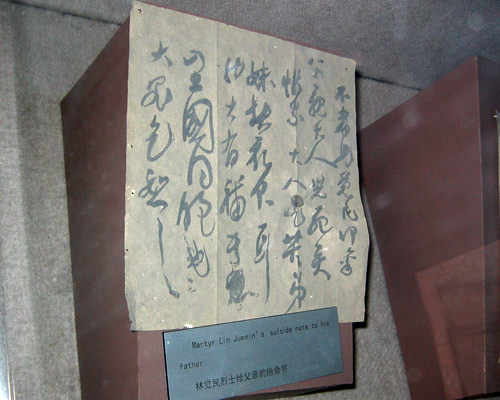 不孝兒覺民叩稟
父親大人兒死矣
惟累大人吃苦弟
妹缺衣食耳
然大有補于
全國同胞也
大罪乞恕之
Martyr Lin Juemin's suicide note to his
father
林觉民烈士给父亲的绝命书